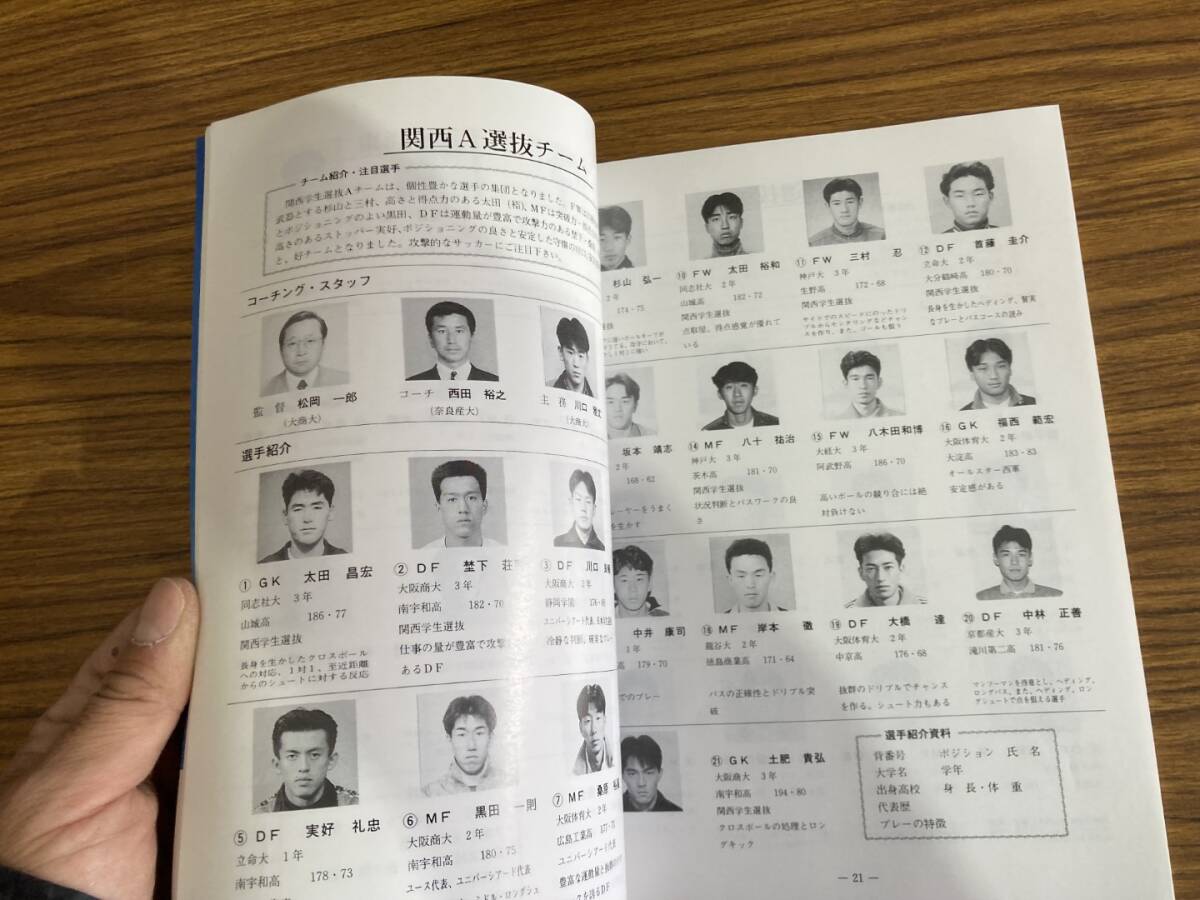 関西A選抜チーム
チーム紹介・注目選手
関西学生選抜Aチームは、個性豊かな選手の集団となりました。FWは
武器とする杉山と三村、高さと得点力のある太田(裕)、MFは突破力
とポジショニングのよい黒田、DFは運動量が豊富で攻撃力のある埜下
高さのあるストッパー実好、ポジショニングの良さと安定した守備の
と、好チームとなりました。攻撃的なサッカーにご注目下さい。
コーチング・スタッフ
監督 松岡 一郎
(大商大)
コーチ 西田 裕之
(奈良産大)
主務 川口
(大商大)
選手紹介
①GK 太田 昌宏
同志社大 3年
山城高 186・77
関西学生選抜
長身を生かしたクロスボール
への対応、1対1、至近距離
からのシュートに対する反応
②DF 埜下 荘
大阪商大 3年
南宇和高 182・70
関西学生選抜
仕事の量が豊富で攻撃
あるDF
③DF 川口
大阪商大 2年
静岡学園
ユニバーシアード代表、
冷静な判断、確実なプレー
⑤DF 実好 礼忠
立命大 1年
南宇和高 178・73
⑥MF 黒田 一則
大阪商大 2年
南宇和高 180・75
ユース代表、ユニバーシアード代表
⑦MF 桑原
大阪体育大 2年
広島工業高
ユニバーシアード代表
豊富な運動量と
を誇るDF
杉山 弘一
2年
174・75
⑩FW 太田 裕和
同志社大 2年
山城高 182・72
関西学生選抜
点取屋、得点感覚が優れて
いる
⑪FW 三村 忍
神戸大 3年
生野高 172・68
関西学生選抜
サイドでのスピードにのったドリ
ブルからセンタリングなどチャン
スを作り、また、ゴールも狙う
⑫DF 首藤 圭介
立命大 2年
大分鶴崎高 180・70
関西学生選抜
長身を生かしたヘディング、堅実
なプレーとパスコースの読み
坂本 靖志
2年
168・62
レーヤーをうまく
を生かす
⑭MF 八十 祐治
神戸大 3年
茨木高 181・70
関西学生選抜
状況判断とパスワークの良
さ
⑮FW 八木田和博
大経大 3年
阿武野高 186・70
高いボールの競り合には絶
対負けない
⑯GK 福西 範宏
大阪体育大 2年
大淀高 183・83
オールスター西軍
安定感がある
中井 康司
1年
高 179・70
でのプレー
⑱MF 岸本 徹
龍谷大 2年
徳島商業高 171・64
パスの正確性とドリブル突
破
⑲DF 大橋 達
大阪体育大 2年
中京高 176・68
抜群のドリブルでチャンス
を作る。シュート力もある
⑳DF 中林 正善
京都産大 3年
滝川第二高 181・76
マンツーマンを得意とし、ヘディング、
ロングパス、また、ヘディング、ロン
グシュートで点を狙える選手
㉑GK 土肥 貴弘
大阪商大 3年
南宇和高 194・80
関西学生選抜
クロスボールの処理とロン
グキック
選手紹介資料
背番号 ポジション 氏 名
大学名 学年
出身高校 身 長・体 重
代表歴
プレーの特徴
— 21 —